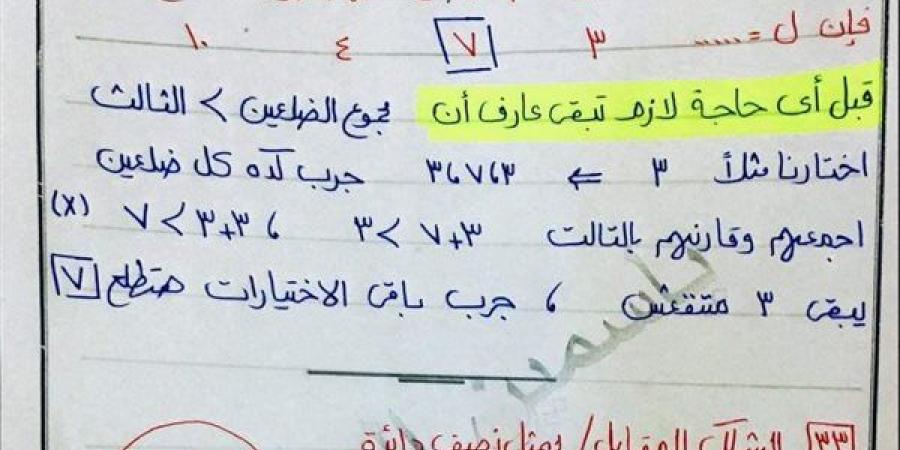 فإن ل = ..... ٣ ٧ ٤ ١٠
قبل أى حاجة لازم تبقى عارف أن مجموع الضلعين > الثالث
اختارنا مثلاً ٣ ⇐ ٣،٧،٣ جرب كده كل ضلعين
اجمعهم وقارنهم بالتالت ٣+٧ > ٣ ، ٣+٣ > ٧ (X)
يبقى ٣ متنفعش ، جرب باقى الاختيارات هتطلع ٧
٣٣ الشكل المقابل / يمثل نصف دائرة